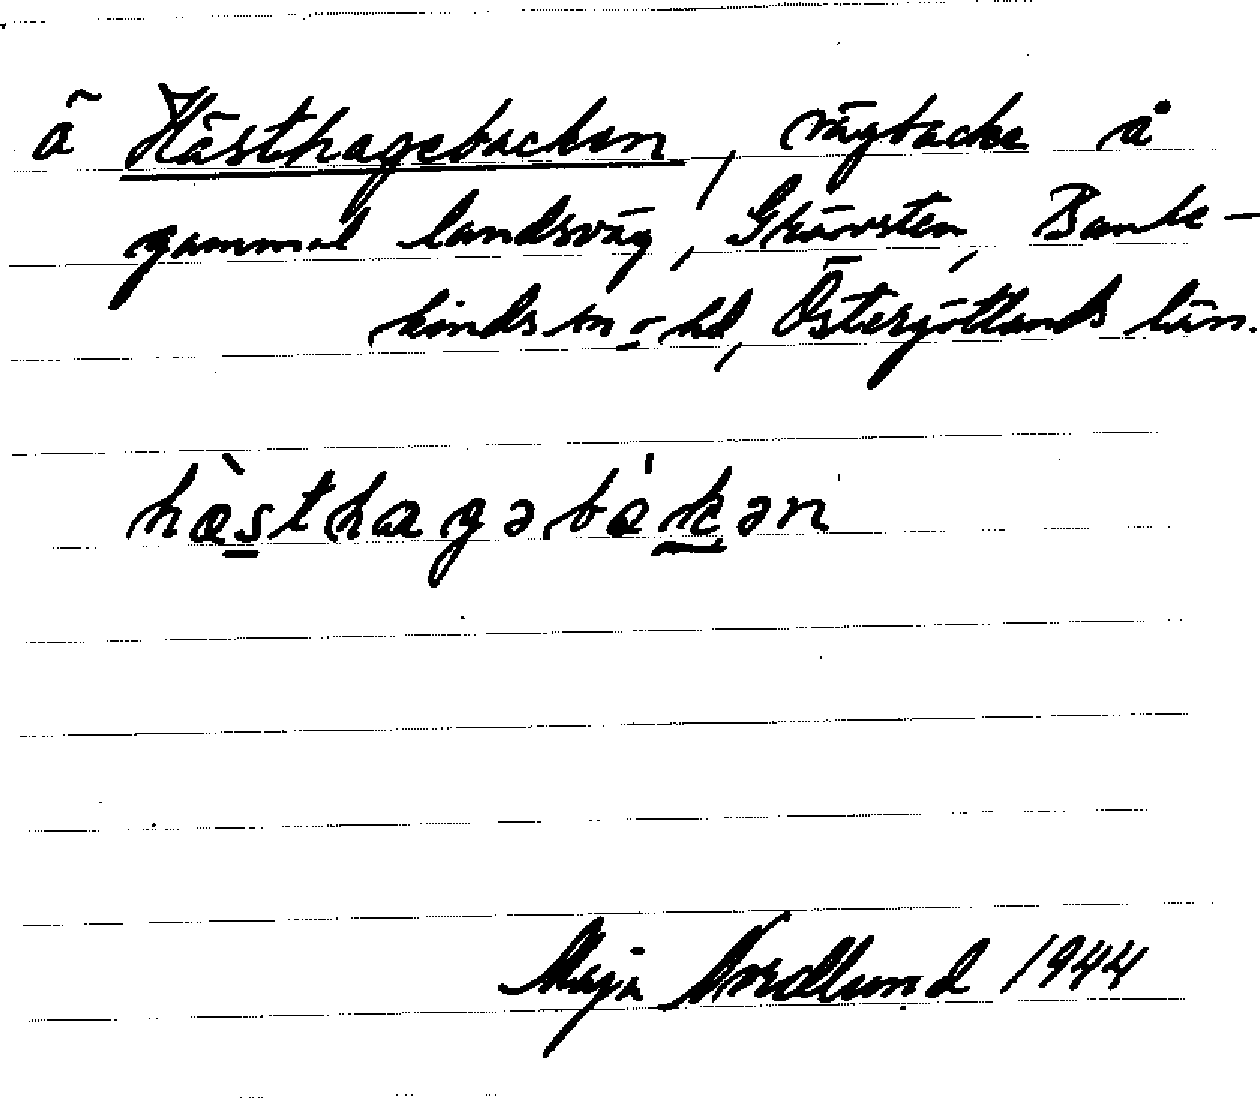 ã Hästhagebacken, vägbacke å
gammal landsväg, Skärsten, Banke-
kinds sn o hd, Östergötlands län.
hæ̀sthagəbákən
Maja Nordlund 1944